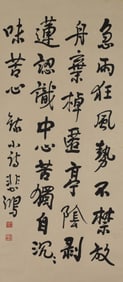 急雨狂風勢不禁放
舟棄棹匿亭陰剝
蓮認識中心苦獨自沉
味苦心 錄小詩 悲鴻